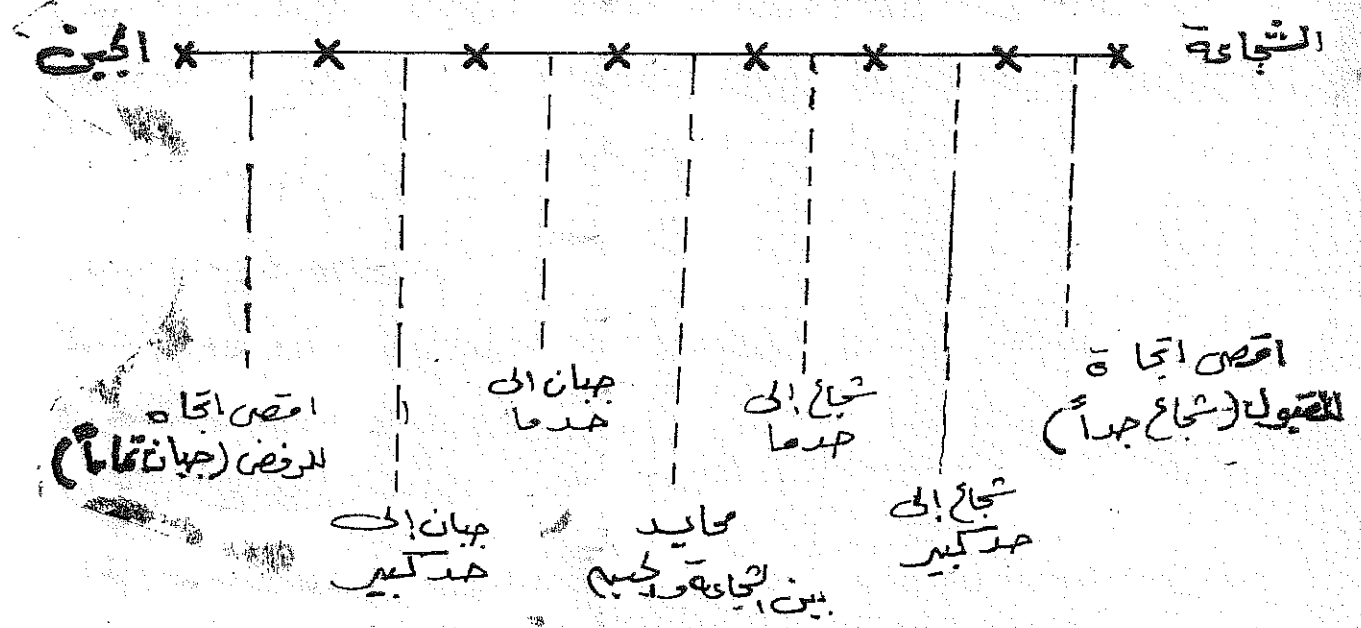 الشجاعة
الجبن
اقصى اتجاة
للقبول (شجاع جداً)
شجاع إلى
حد كبير
شجاع إلى
حد ما
محايد
بين الشجاعة والجبن
جبان الى
حد ما
جبان إلى
حد كبير
اقصى اتجاه
للرفض (جبان تماماً)